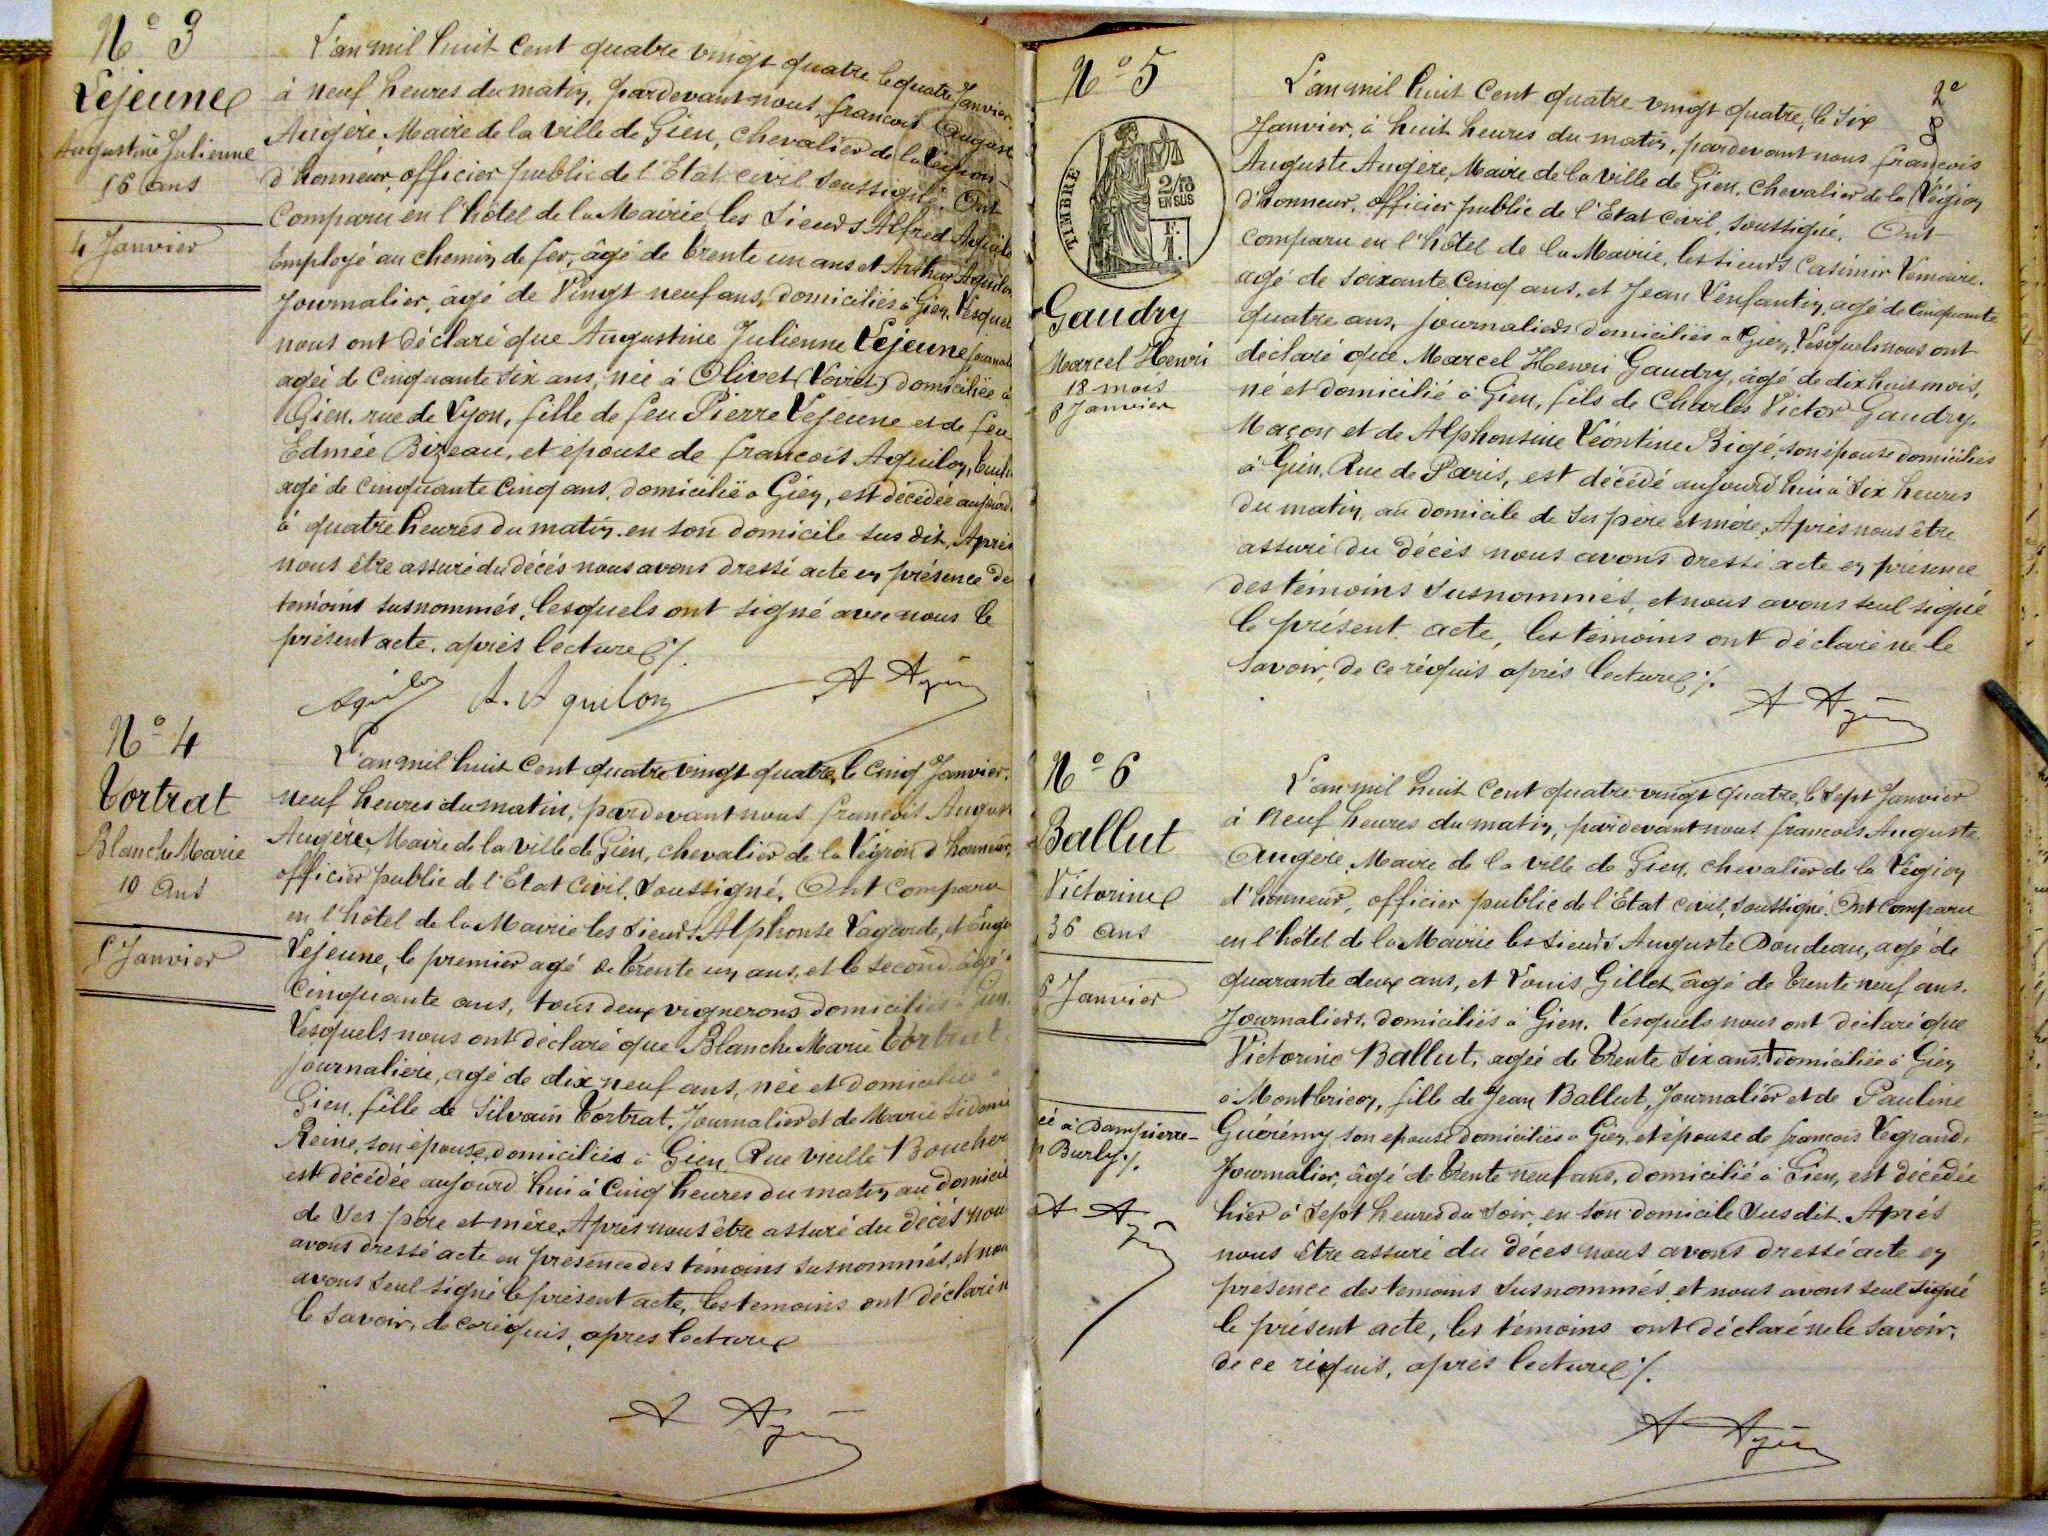 Nº 3
Lejeune
Augustine Julienne
56 ans
4 Janvier
L'an mil huit cent quatre vingt quatre le quatre Janvier,
à neuf heures du matin, pardevant nous françois Auguste
Augère, Maire de la ville de Gien, chevalier de la Légion
d'honneur, officier public de l'Etat civil soussigné. Ont
comparu en l'hôtel de la Mairie, les sieurs Alfred Aquilon
Employé au chemin de fer, âgé de trente un ans et Arthur Aquilon
Journalier, âgé de Vingt neuf ans, domiciliés à Gien, Lesquels
nous ont déclaré que Augustine Julienne Lejeune
agée de cinquante six ans, née à Olivet (Loiret) domiciliée à
Gien, rue de Lyon, fille de feu Pierre Lejeune et de feu
Edmée Bizeau, et épouse de françois Aquilon,
agé de cinquante cinq ans, domicilié à Gien, est décédée aujourd
à quatre heures du matin en son domicile sus dit, Après
nous être assuré du décès nous avons dressé acte en présence de
temoins susnommés, lesquels ont signé avec nous le
présent acte, après lecture ./.
Aquilon A. Aquilon A Augère
Nº 4
Tortrat
Blanche Marie
19 Ans
5 Janvier
L'an mil huit cent quatre vingt quatre, le cinq Janvier,
neuf heures du matin, pardevant nous françois August
Augère Maire de la ville de Gien, chevalier de la Légion d'honneur,
officier public de l'Etat civil, soussigné, Ont comparu
en l'hôtel de la Mairie les sieurs Alphonse Lagarde, et
Lejeune, le premier agé de trente un ans, et le second âgé
cinquante ans, tous deux vignerons domiciliés à Gien
Lesquels nous ont déclaré que Blanche Marie Tortrat
journalière, agé de dix neuf ans, née et domiciliée à
Gien, fille de Silvain Tortrat, Journalier et de Marie Sidonie
Reine, son épouse, domiciliés à Gien Rue vieille Boucher
est décédée aujourd'hui à cinq heures du matin au domicile
de ses père et mère, Après nous être assuré du décès nou
avons dressé acte en présence des témoins susnommés, et nou
avons seul signé le présent acte, les temoins ont déclaré n
le savoir, de ce requis, après lecture
A Augère
Nº 5
TIMBRE
2/10
EN SUS
F.
1.
Gaudry
Marcel Henri
18 mois
6 Janvier
2e
8
L'an mil huit cent quatre vingt quatre, le six
Janvier, à huit heures du matin, pardevant nous françois
Auguste Augère, Maire de la ville de Gien, chevalier de la Légion
d'honneur, officier public de l'Etat civil, soussigné, Ont
comparu en l'hôtel de la Mairie, les sieurs Casimir Lemaire,
agé de soixante cinq ans, et Jean Lenfantin, agé de cinquante
quatre ans, journaliers domiciliés à Gien, Lesquels nous ont
déclaré que Marcel Henri Gaudry, âgé de dix huit mois,
né et domicilié à Gien, fils de Charles Victor Gaudry,
Maçon et de Alphonsine Léontine Bigé, son épouse domiciliés
à Gien, Rue de Paris, est décédé aujourd'hui à six heures
du matin, au domicile de ses père et mère, Après nous être
assuré du décès nous avons dressé acte en présence
des témoins susnommés, et nous avons seul signé
le présent acte, les témoins ont déclaré ne le
savoir, de ce réquis après lecture ./.
A Augère
Nº 6
Ballut
Victorine
36 ans
6 Janvier
L'an mil huit cent quatre vingt quatre, le sept Janvier
à neuf heures du matin, pardevant nous françois Auguste
Augère, Maire de la ville de Gien, chevalier de la Légion
d'honneur, officier public de l'Etat civil, soussigné. Ont comparu
en l'hôtel de la Mairie les sieurs Auguste Doudeau, agé de
quarante deux ans, et Louis Gillet, âgé de trente neuf ans,
Journaliers, domiciliés à Gien, Lesquels nous ont déclaré que
Victorine Ballut, agée de trente six ans, domiciliée à Gien
à Montbricon, fille de Jean Ballut, Journalier et de Pauline
Guérémy son epouse domiciliés à Gien, et épouse de françois Legrand,
Journalier, âgé de trente neuf ans, domicilié à Gien, est décédée
hier à sept heures du soir, en son domicile susdit. Après
nous être assuré du décès nous avons dressé acte en
présence des temoins susnommés, et nous avons seul signé
le présent acte, les témoins ont déclaré ne le savoir,
de ce réquis, après lecture ./.
ée à Dampierre-
n Burly ./.
A Augère
A Augère